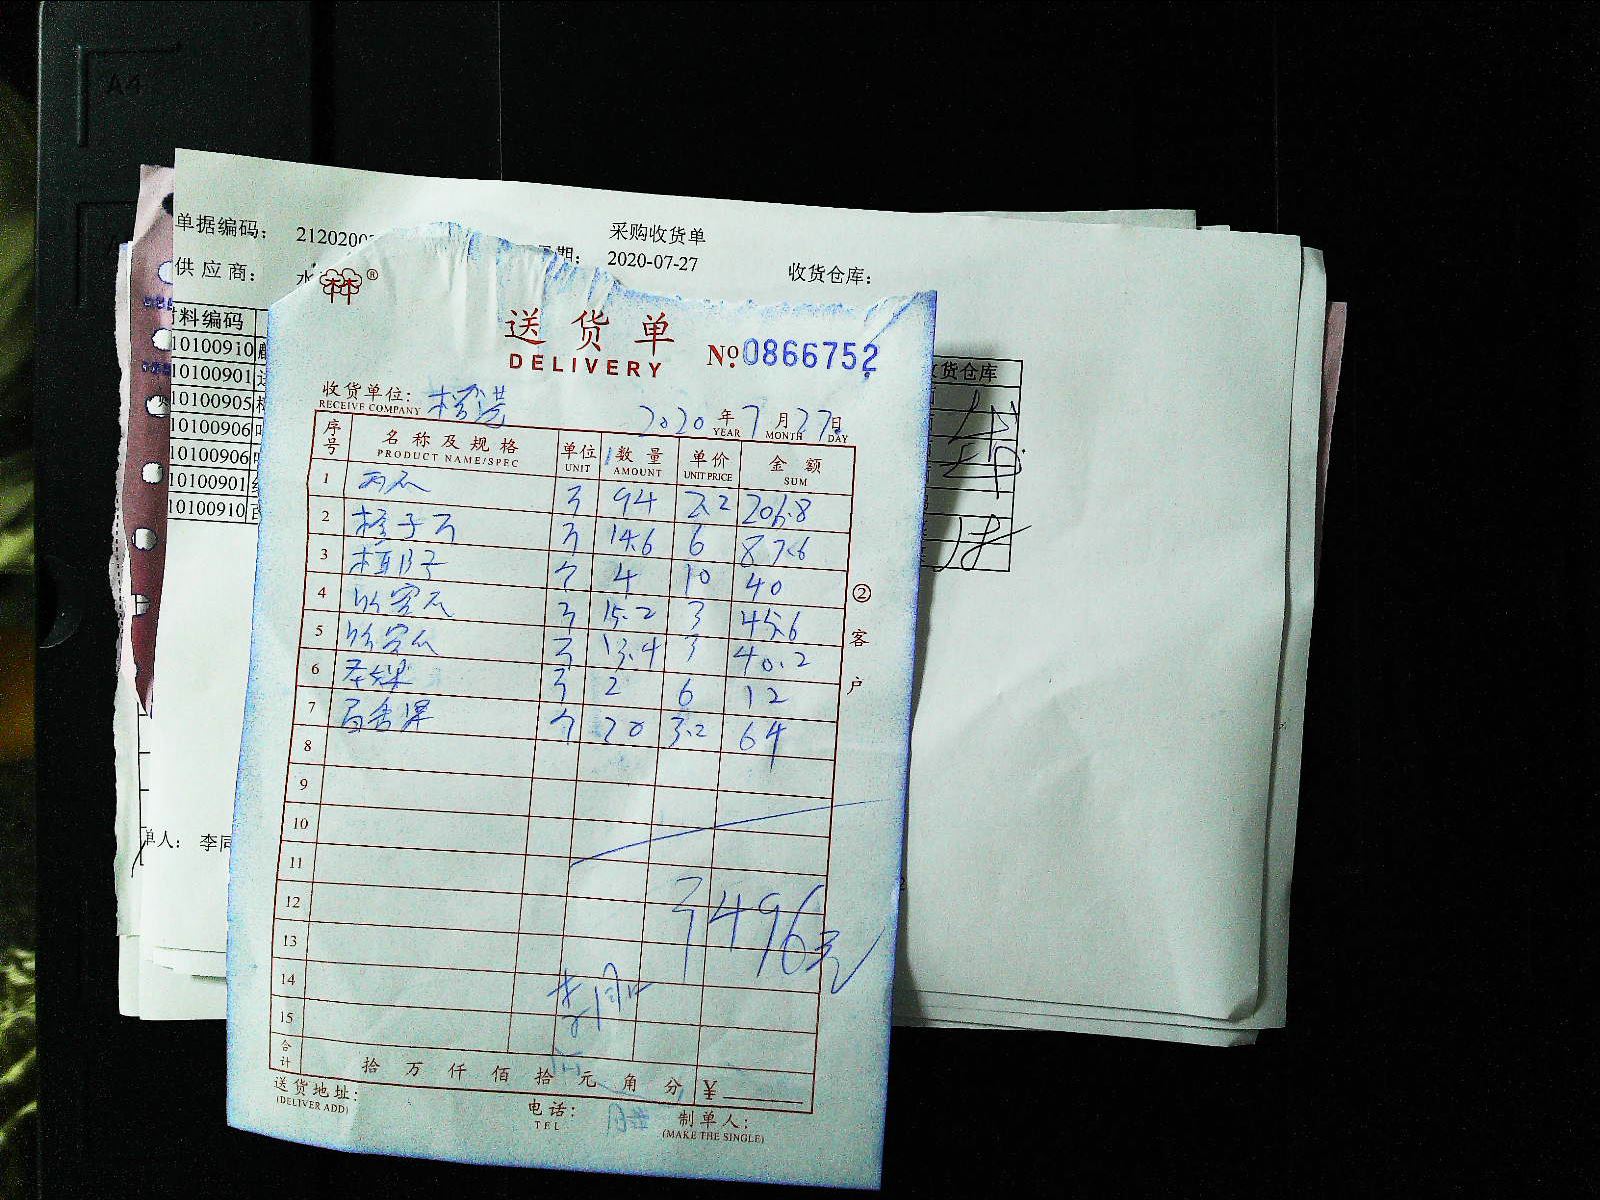 A4
采购收货单
单据编码： 2120200
期： 2020-07-27
供应商： 水
收货仓库：
料编码
货仓库
10100910
10100901
10100905
10100906
10100906
10100901
10100910
单人： 李同
林®
送货单
DELIVERY
№.0866752
收货单位：
RECEIVE COMPANY
2020 年 7 月 27 日
YEAR MONTH DAY
序号 名称及规格 单位 数量 单价 金额
PRODUCT NAME/SPEC UNIT AMOUNT UNIT PRICE SUM
1 西瓜 斤 94 2.2 206.8
2 斤 14.6 6 87.6
3 个 4 10 40
4 哈密瓜 斤 15.2 3 45.6
5 哈密瓜 斤 13.4 3 40.2
6 斤 2 6 12
7 百香果 个 20 3.2 64
8
9
10
11
12
13
14
15
496元
合计 拾 万 仟 佰 拾 元 角 分 ¥
②客户
送货地址：
(DELIVER ADD)
电话：
TEL
制单人：
(MAKE THE SINGLE)